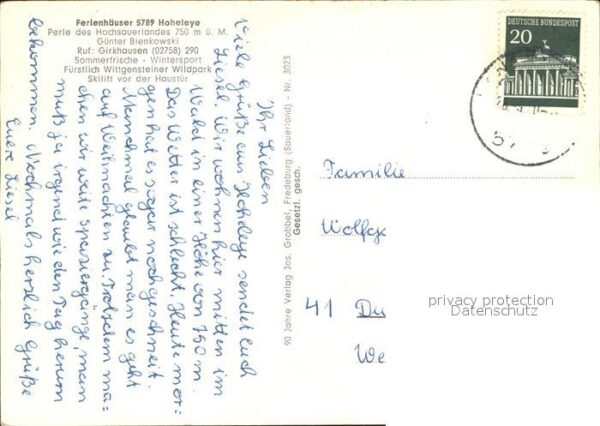 Ferienhäuser 5789 Hoheleye
Perle des Hochsauerlandes 750 m ü. M.
Günter Bienkowski
Ruf: Girkhausen (02758) 290
Sommerfrische - Wintersport
Fürstlich Wittgensteiner Wildpark
Skilift vor der Haustür
Ihr Lieben
Viele Grüße aus Hoheleye sendet Euch
Liesel. Wir wohnen hier mitten im
Wald in einer Höhe von 750 m.
Das Wetter ist schlecht. Heute mor-
gen hat es sogar noch geschneit.
Manchmal glaubt man es geht
auf Weihnachten zu. Trotzdem ma-
chen wir weite Spaziergänge, man
muß ja irgendwie den Tag herum
bekommen. Nochmals herzlich Grüße
Euere Liesel
90 Jahre Verlag Jos. Grobbel, Fredeburg (Sauerland) - Nr. 5023
Gesetzl. gesch.
DEUTSCHE BUNDESPOST
20
Familie
Wolfg
41 Du
We
privacy protection
Datenschutz